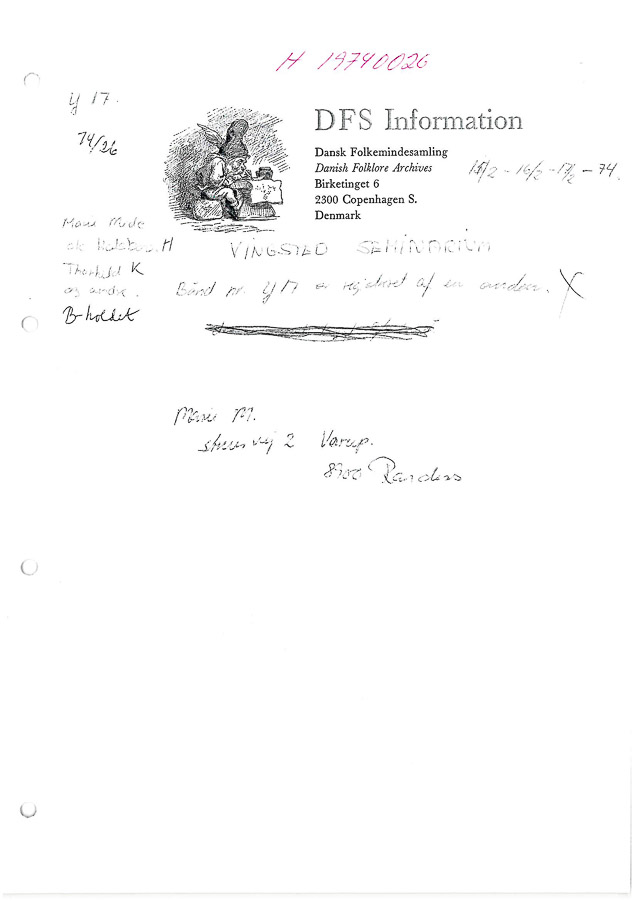 H 19740026
y 17.
74/26
DFS Information
Dansk Folkemindesamling
Danish Folklore Archives
Birketinget 6
2300 Copenhagen S.
Denmark
15/2 - 16/2 - 17/2 - 74.
H
VINGSTED SEMINARIUM
Thorkild K
og andre.
Bånd nr. y 17 er registreret af en anden. X
B-holdet
Marie M.
vej 2 Vorup.
8900 Randers